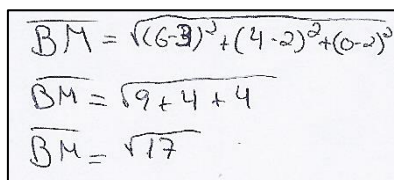 BM = √(6-3)² + (4-2)² + (0-2)²
BM = √9 + 4 + 4
BM = √17